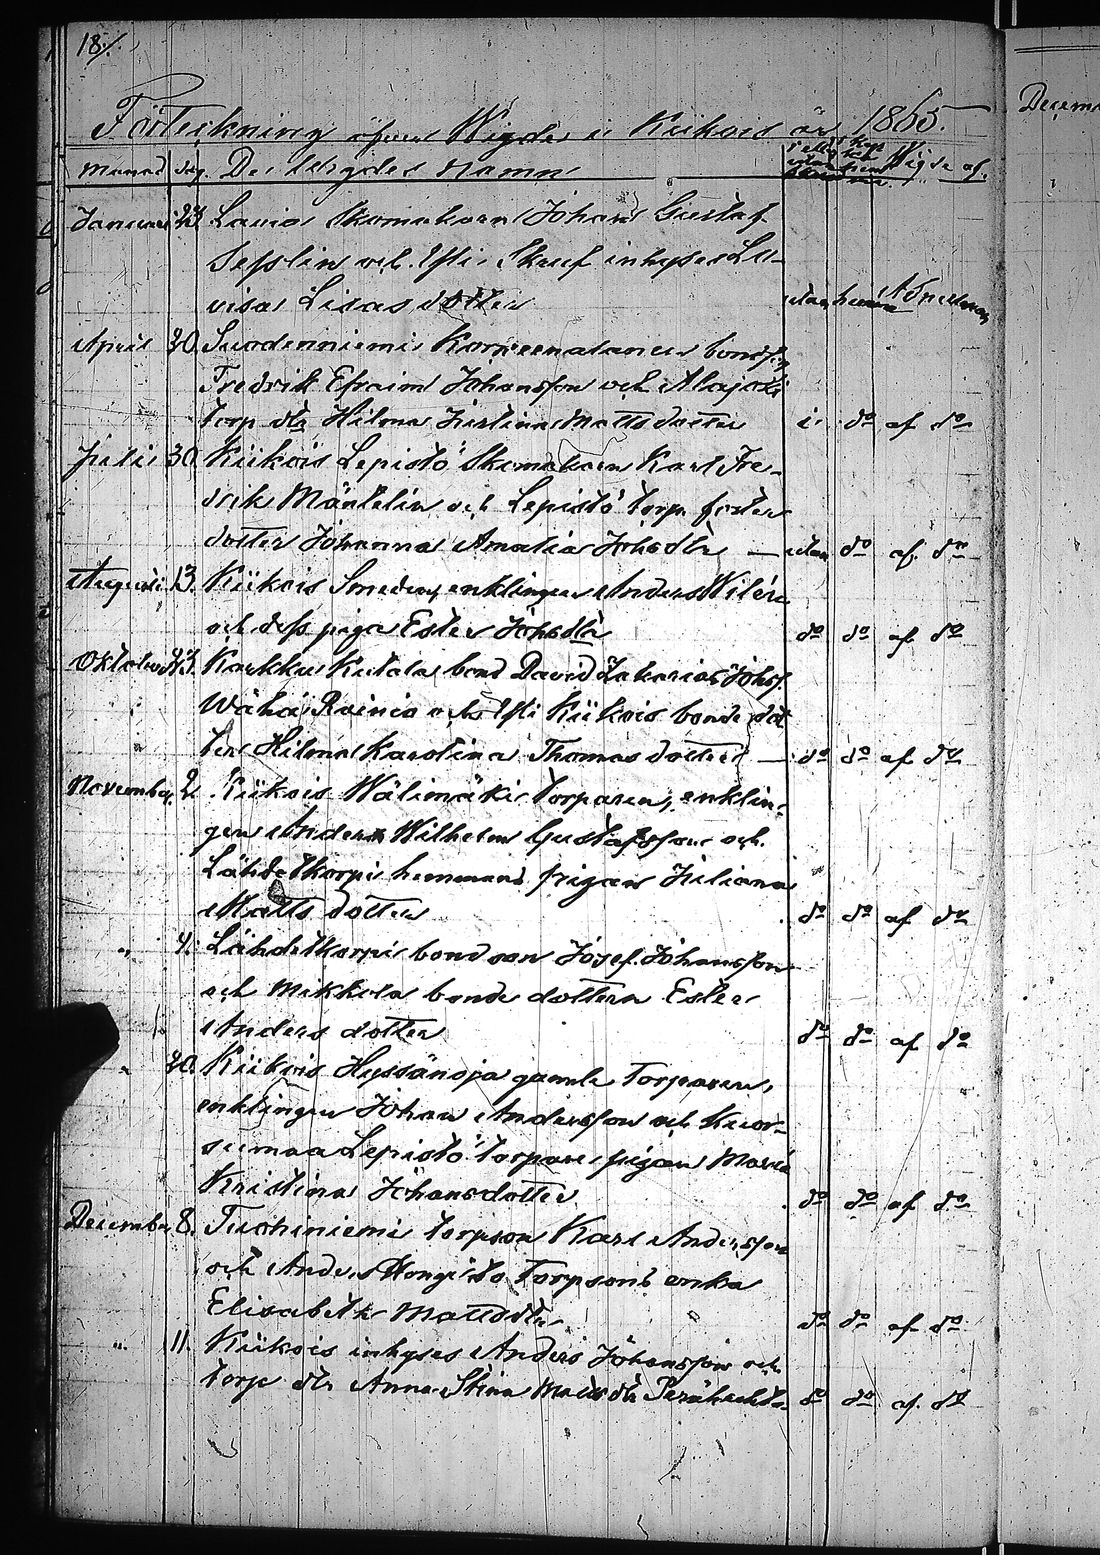 18
Förteckning öfver Wigde i Kiikois år 1865.
Månad dag. De Wigdes Namn Wigde af.
Januari 23. Lavia Skomakaren Johan Gustaf
Seflin och Skeuf inhyses Lo-
visa Lisas dotter utan hemma
April 20. Suodenniemi bonds.
Fredrik Efraim Johansson och Alajoki
torp dtr Hilma Kristina Matts dotter i do af do
Juli 30. Kiikois Lepistö Skomakaren Karl Fre-
drik Mäntelin och Lepistö torp. foster
dotter Johanna Amalia Johsdtr — utan do af do
Augusti 13. Kiikois Smeden, enklingen Anders Wilén
och dess piga Ester Johsdtr do do af do
Oktober Karkku Kutala bond David Zakarias Johss.
Wähä Rainio och Kiikois bonde dot
ter Hilma Karolina Thomas dotter — do do af do
November 2. Kiikois Wälimäki Torparen, enklin-
gen Anders Wilhelm Gustafsson och
Lähdekorpi hemmans pigan Juliana
Matts dotter do do af do
" 4. Lähdekorpi bondson Josef Johansson
och Mikkola bonde dottern Ester
Anders dotter do do af do
" 20. Kiikois Hyssänoja gamle Torparen,
enklingen Johan Andersson och Kuor-
sumaa Lepistö torpare pigan Maria
Kristina Johansdotter do do af do
December 8. Tuohiniemi torpson Karl Andersson
och Anders Hongisto Torpsons enka
Elisabeth Mattsdtr. do do af do
" 11. Kiikois inhyses Anders Johansson och
torp dtr Anna Stina Mattsdtr do do af do
Decem